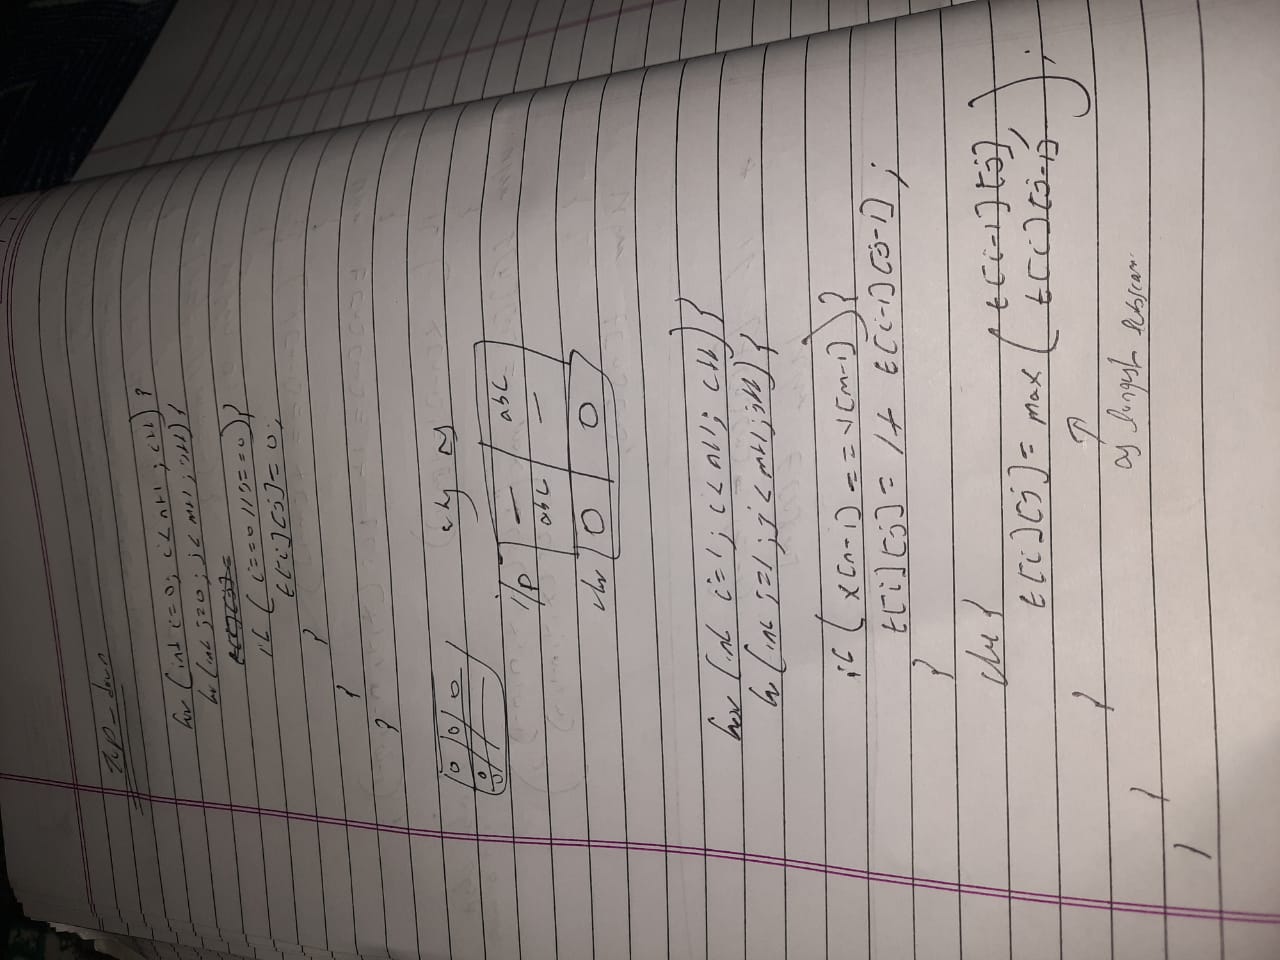 Top-down
for (int i=0; i<n+1; i++) {
for (int j=0; j<m+1; j++) {
if (i==0 || j==0) {
t[i][j]=0;
}
}
}
0 0 0
0
0
i/p — abc
abc —
0 0
for (int i=1; i<n+1; i++) {
for (int j=1; j<m+1; j++) {
if (x[n-1] == y[m-1]) {
t[i][j]= 1+ t[i-1][j-1];
}
else {
t[i][j]= max ( t[i-1][j],
t[i][j-1] );
}
}
}
as longest